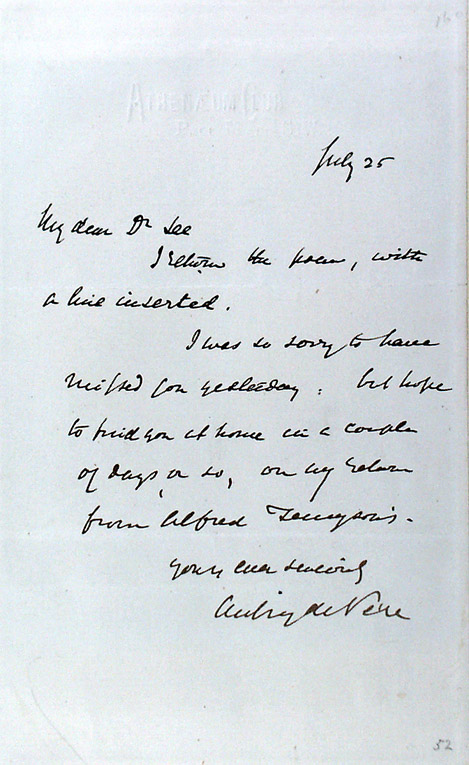 ATHENÆUM CLUB
July 25
My dear Dr Lee
I return the poem, with
a line inserted.
I was so sorry to have
missed you yesterday: but hope
to find you at home in a couple
of days, or so, on my return
from Alfred Tennyson's.
Yours ever sincerely
Aubrey de Vere
52